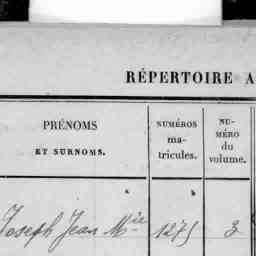 RÉPERTOIRE A
PRÉNOMS
ET SURNOMS.
NUMÉROS
ma-
tricules.
NU-
MÉRO
du
volume.
Joseph Jean Mie 1275 3